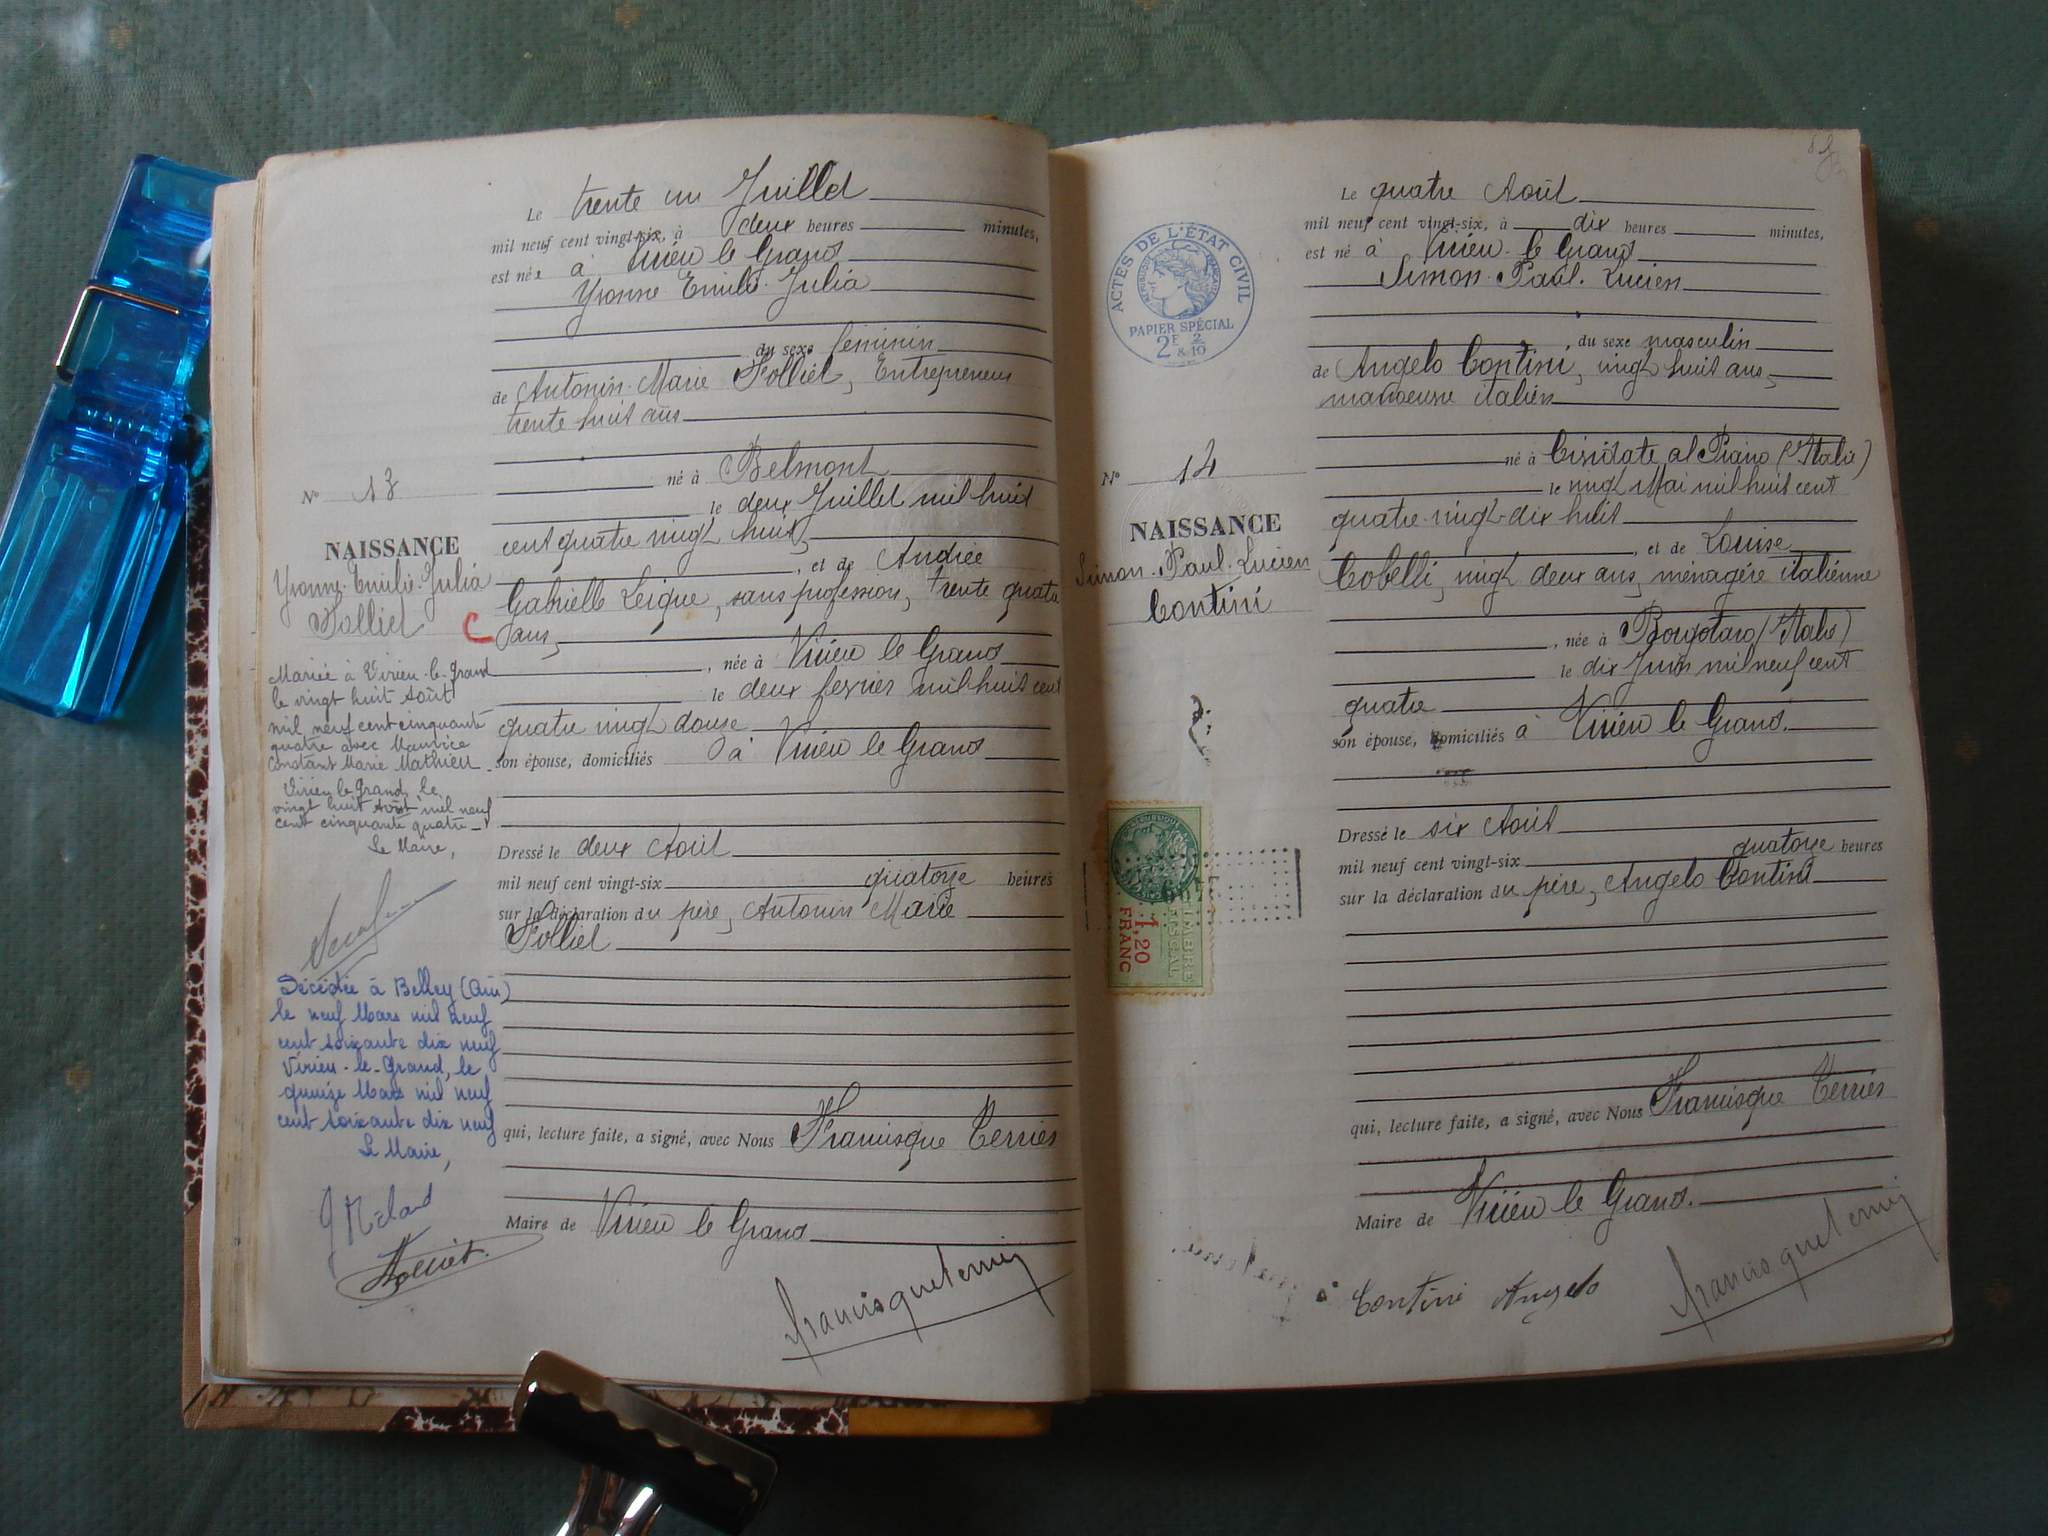 Le trente un Juillet
mil neuf cent vingt-six, à deux heures minutes,
est née à Virieu le Grand
Yvonne Emilie Julia
du sexe féminin
de Antonin Marie Folliet, Entrepreneur
trente huit ans
né à Belmont
le deux Juillet mil huit
cent quatre vingt huit,
, et de Andrée
Gabrielle Leigue, sans profession, trente quatre
ans,
, née à Virieu le Grand
le deux fevrier mil huit cent
quatre vingt douze
son épouse, domiciliés à Virieu le Grand
Dressé le deux Août
mil neuf cent vingt-six quatorze heures
sur la déclaration du père, Antonin Marie
Folliet
qui, lecture faite, a signé, avec Nous Francisque Terrier
Maire de Virieu le Grand
Francisque Terrier
N° 13
NAISSANCE
Yvonne Emilie Julia
Folliet
C
Mariée à Virieu-le-Grand
le vingt huit Août
mil neuf cent cinquante
quatre avec Maurice
Constant Marie Mathieu
Virieu le Grand, le
vingt huit Août mil neuf
cent cinquante quatre
Le Maire,
Décédée à Belley (Ain)
le neuf Mars mil neuf
cent soixante dix neuf
Virieu-le-Grand, le
quinze Mars mil neuf
cent soixante dix neuf
Le Maire,
Folliet
Le quatre Août
mil neuf cent vingt-six, à dix heures minutes,
est né à Virieu le Grand
Simon Paul Lucien
, du sexe masculin
de Angelo Contini, vingt huit ans,
manoeuvre italien
né à Cividate al Piano (Italie)
le vingt Mai mil huit cent
quatre vingt dix huit
, et de Louise
Cobelli, vingt deux ans, ménagère italiénne
, née à (Italie)
le dix Juin mil neuf cent
quatre
son épouse, domiciliés à Virieu le Grand.
Dressé le six Août
mil neuf cent vingt-six quatorze heures
sur la déclaration du père, Angelo Contini
qui, lecture faite, a signé, avec Nous Francisque Terrier
Maire de Virieu le Grand.
Contini Angelo
Francisque Terrier
ACTES DE L'ÉTAT CIVIL
RÉPUBLIQUE FRANÇAISE
PAPIER SPÉCIAL
2F 2
& 10
N° 14
NAISSANCE
Simon Paul Lucien
Contini
TIMBRE
FISCAL
1,20
FRANC